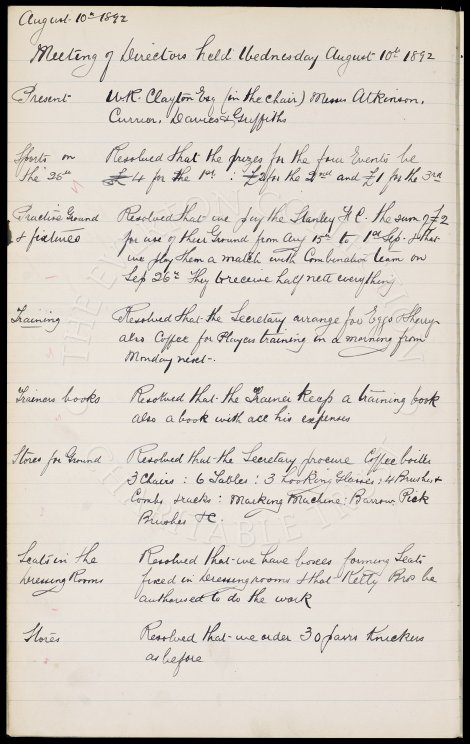 August 10th 1892
Meeting of Directors held Wednesday August 10th 1892
Present W.R. Clayton Esq (in the chair) Messrs Atkinson,
Currier, Davies & Griffiths
Sports on Resolved that the prizes for the four Events be
the 26th £4 for the 1st : £2 for the 2nd and £1 for the 3rd
Practise Ground Resolved that we pay the Stanley F.C. the sum of £2
& fixtures for use of their Ground from Aug 15th to 1st Sep. & that
we play them a match with Combination team on
Sep 26th They to receive half nett everything.
Training Resolved that the Secretary arrange for Eggs & Sherry
also Coffee for Players training in a morning from
Monday next.
Trainers books Resolved that the Trainer keep a training book
also a book with all his expenses
Stores for Ground Resolved that the Secretary procure Coffee boiler
3 Chairs : 6 Tables : 3 Looking Glasses, 4 Brushes &
Combs & racks : Marking Machine : Barrow, Pick
Brushes &c.
Seats in the Resolved that we have boxes forming Seats
Dressing Rooms fixed in dressing rooms & that Kelly Bros be
authorised to do the work
Stores Resolved that we order 30 pairs Knickers
as before